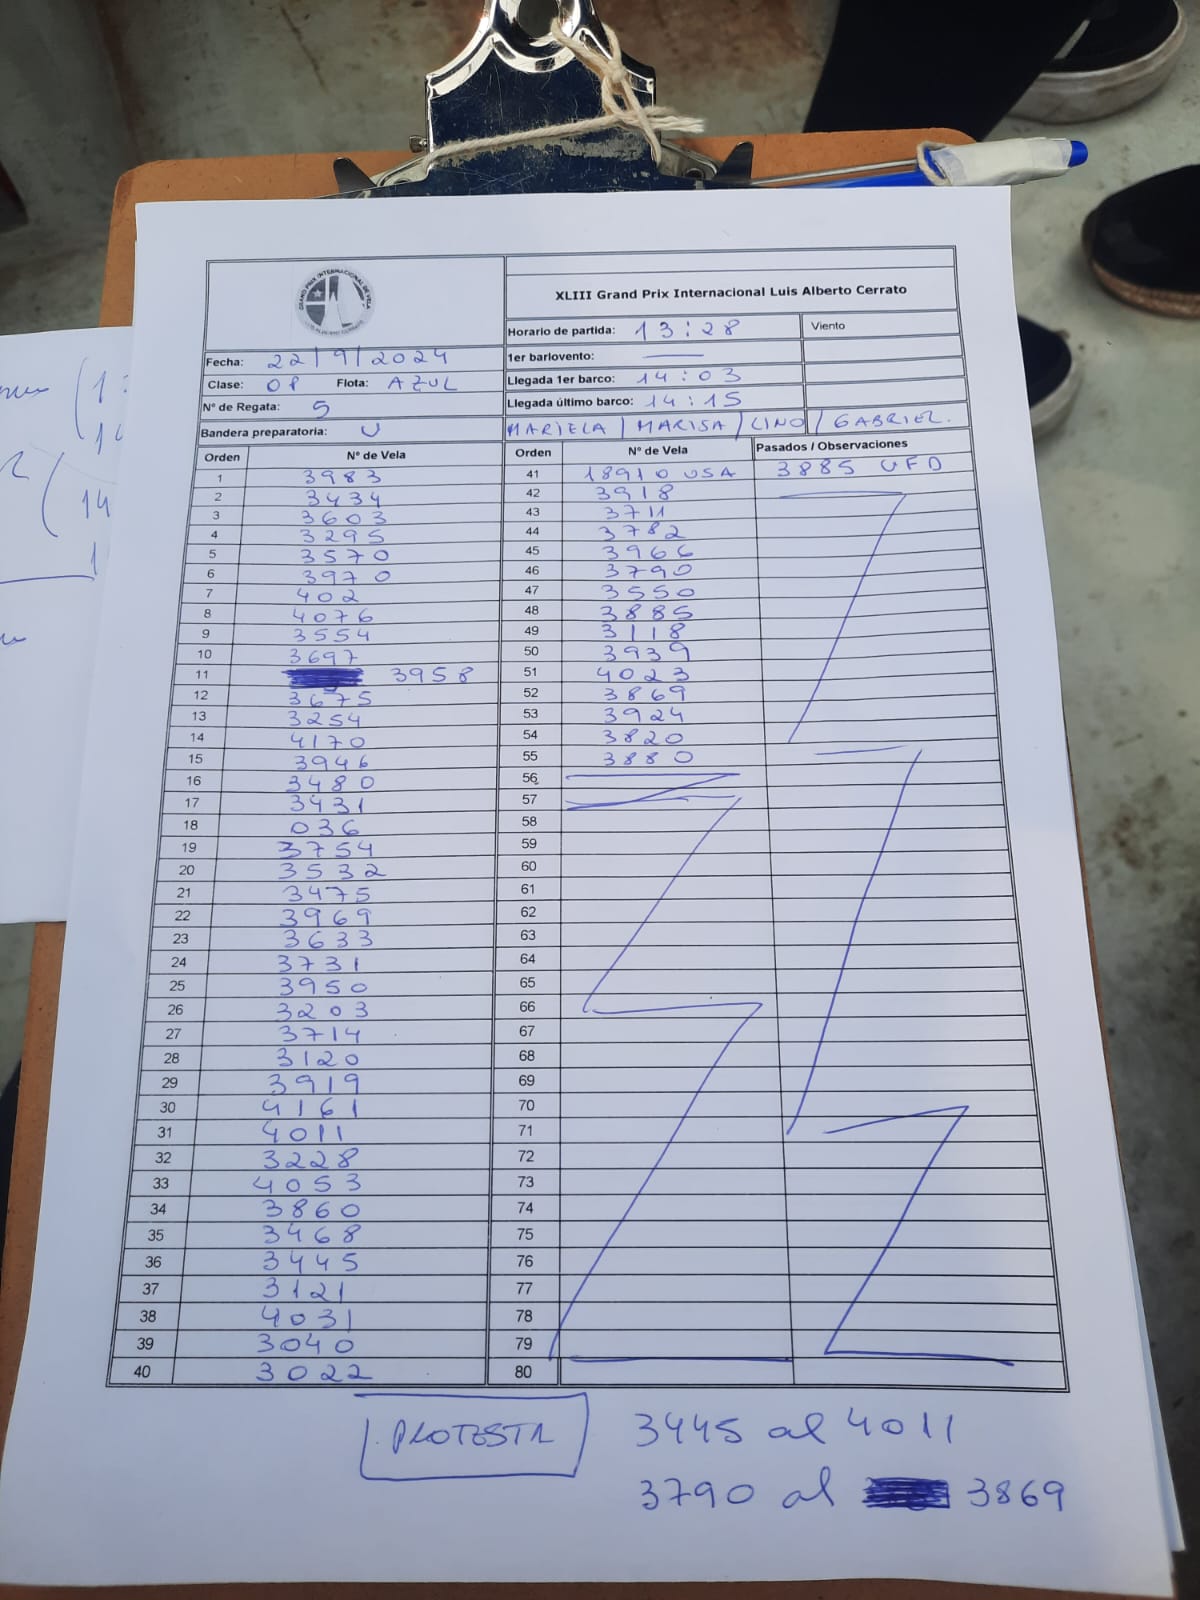 GRAND PRIX INTERNACIONAL DE VELA
LUIS ALBERTO CERRATO
XLIII Grand Prix Internacional Luis Alberto Cerrato
Horario de partida: 13:28 Viento
Fecha: 22/9/2024 1er barlovento: —
Clase: OP Flota: AZUL Llegada 1er barco: 14:03
Nº de Regata: 5 Llegada último barco: 14:15
Bandera preparatoria: U MARIELA / MARISA / LINO / GABRIEL.
Orden Nº de Vela Orden Nº de Vela Pasados / Observaciones
1 3983 41 18910 USA 3885 UFD
2 3434 42 3918
3 3603 43 3711
4 3295 44 3782
5 3570 45 3966
6 3970 46 3790
7 402 47 3550
8 4076 48 3885
9 3554 49 3118
10 3697 50 3939
11 3958 51 4023
12 3675 52 3869
13 3254 53 3924
14 4170 54 3820
15 3946 55 3880
16 3480 56
17 3431 57
18 036 58
19 3754 59
20 3532 60
21 3475 61
22 3969 62
23 3633 63
24 3731 64
25 3950 65
26 3203 66
27 3714 67
28 3120 68
29 3919 69
30 4161 70
31 4011 71
32 3228 72
33 4053 73
34 3860 74
35 3468 75
36 3445 76
37 3121 77
38 4031 78
39 3040 79
40 3022 80
PROTESTA 3445 al 4011
3790 al 3869